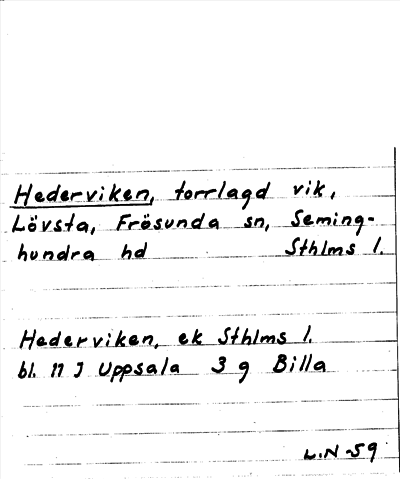 Hederviken, torrlagd vik,
Lövsta, Frösunda sn, Seming-
hundra hd Sthlms l.
Hederviken, ek Sthlms l.
bl. 11 J Uppsala 3 g Billa
L.N -59